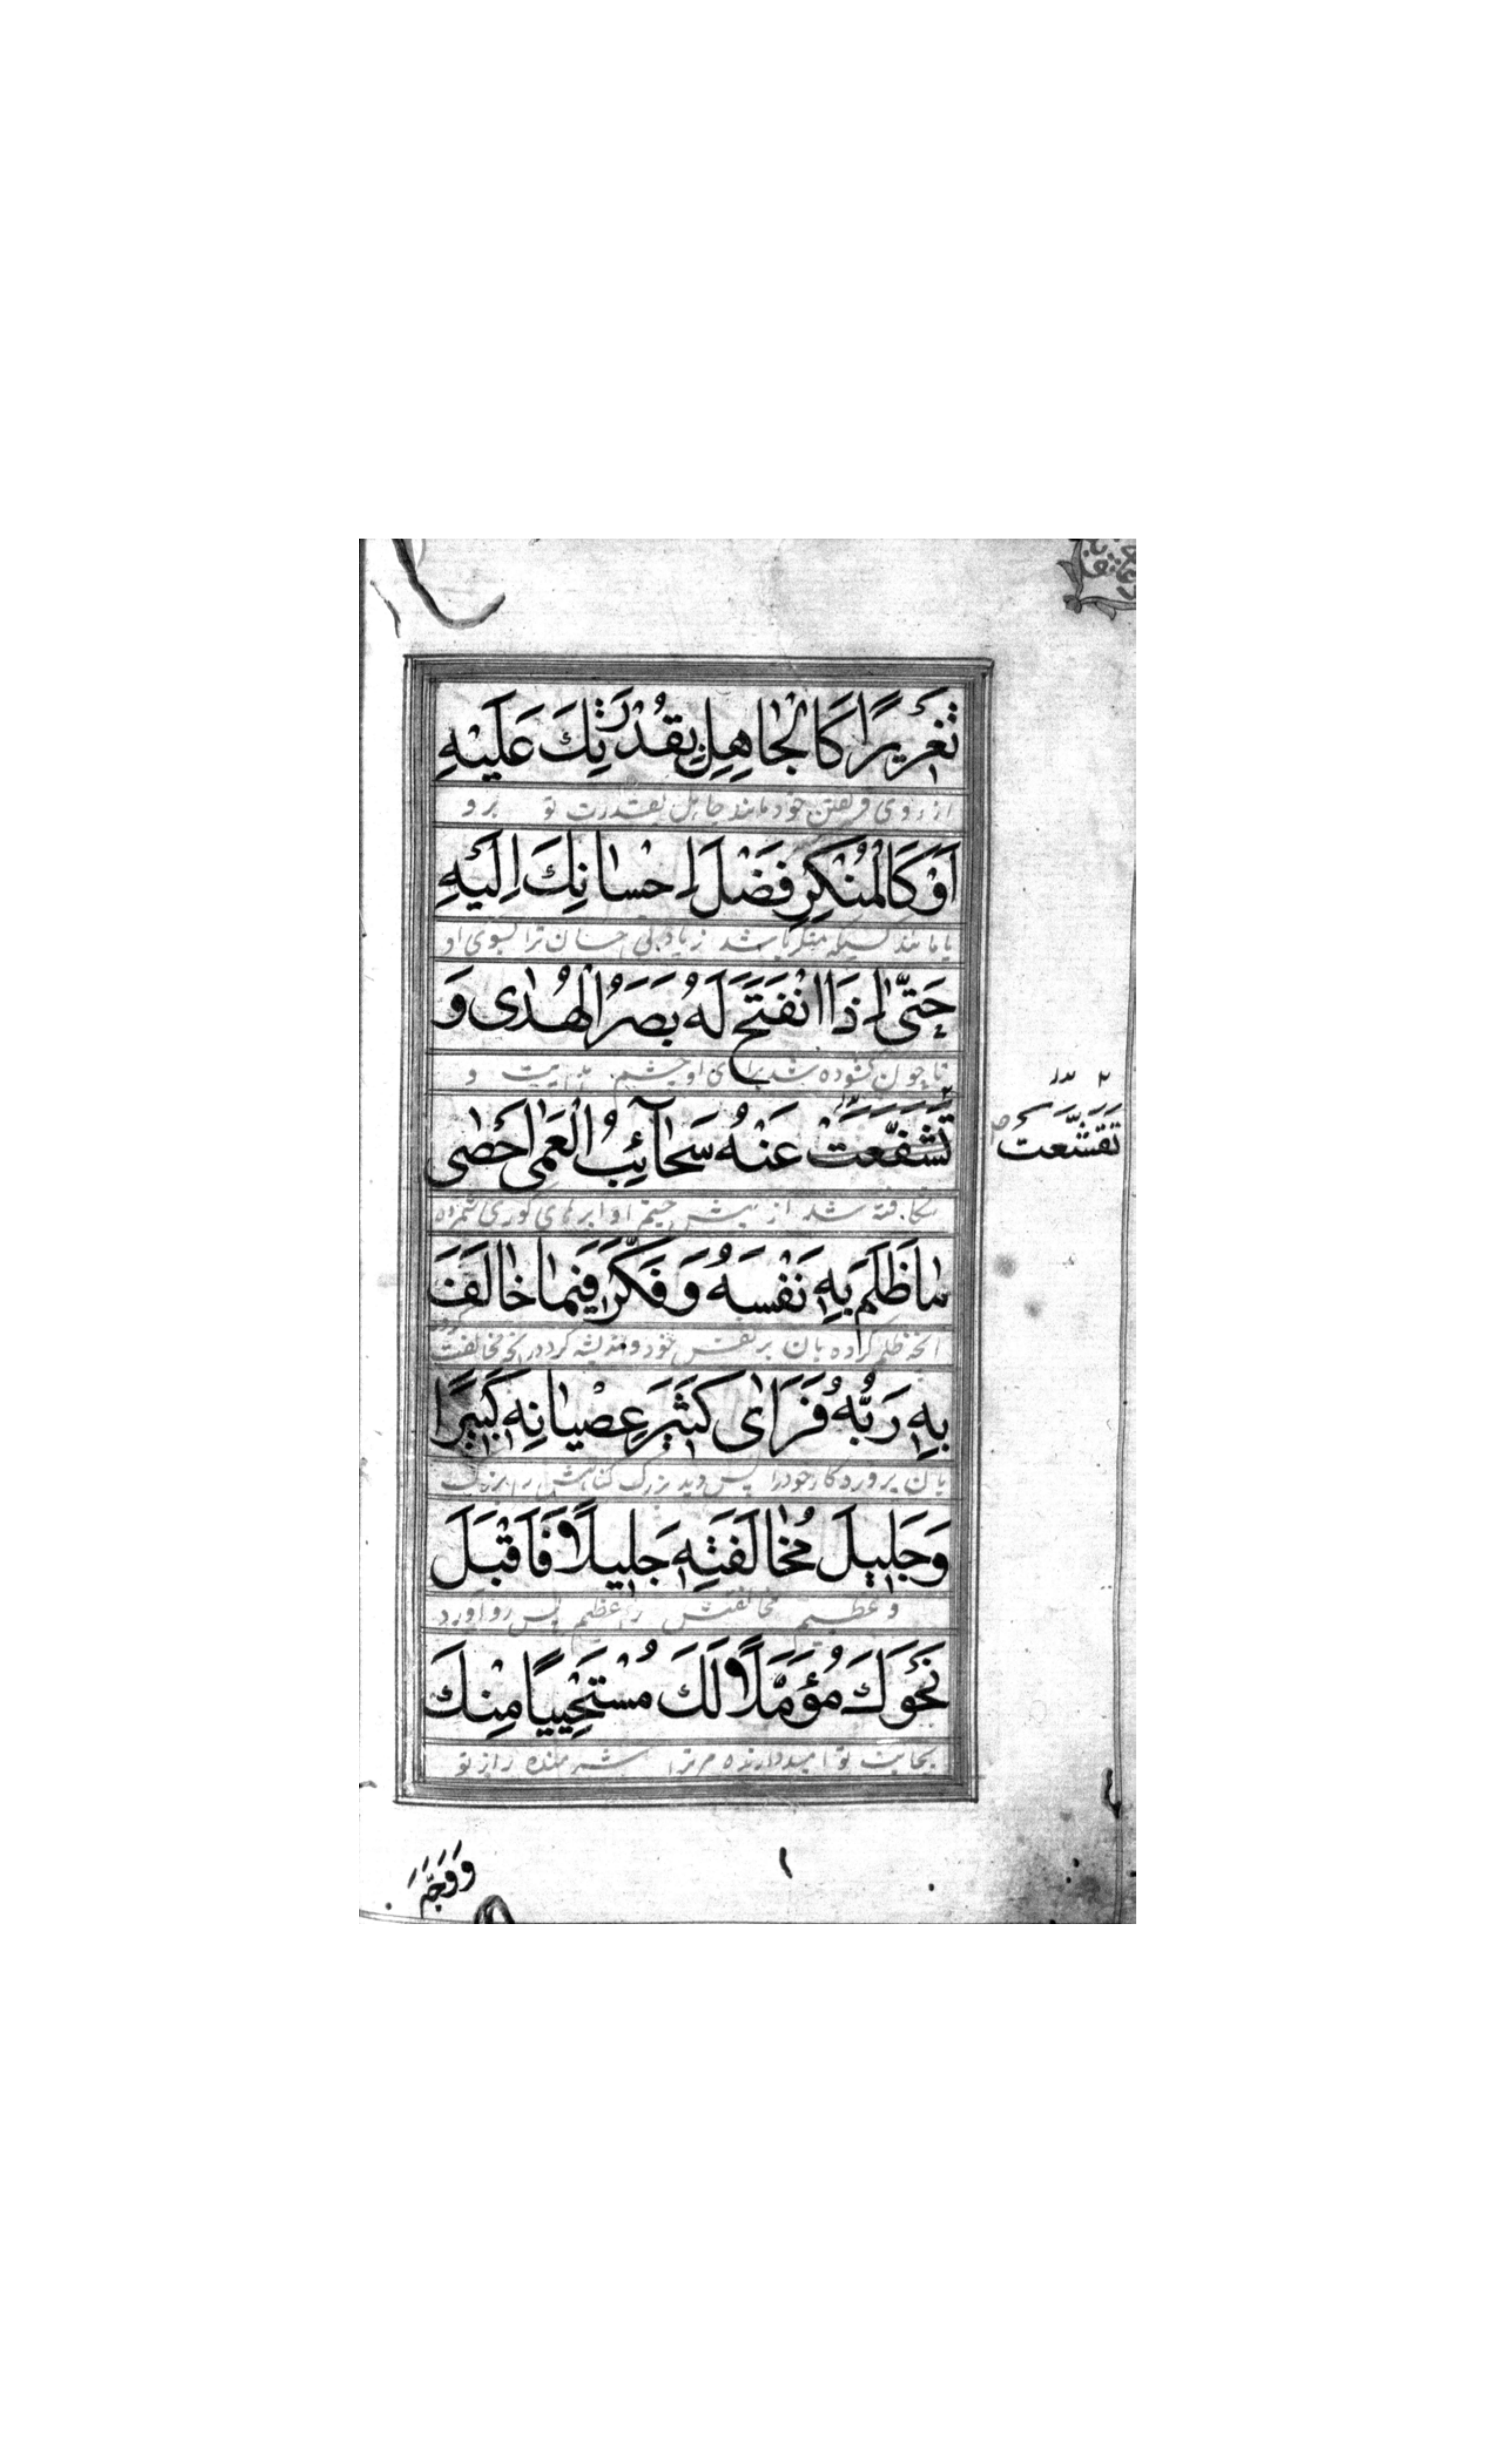 تَغْرِيرًا كَالْجَاهِلِ بِقُدْرَتِكَ عَلَيْهِ
از روی فریفتن خود مانند جاهل بقدرت تو برو
اَوْ كَالْمُنْكِرِ فَضْلَ اِحْسَانِكَ اِلَيْهِ
یا مانند کسیکه منکر باشد زیادتی احسان ترا بسوی او
حَتّٰى اِذَا انْفَتَحَ لَهُ بَصَرُ الْهُدٰى وَ
تا چون کشوده شد برای او چشم هدایت و
تَشَفَّعَتْ عَنْهُ سَحَآئِبُ الْعَمٰى اَحْصٰى
تَقَشَّعَت
شکافته شد از پیش چشم او ابرهای کوری شمرده
مَا ظَلَمَ بِهِ نَفْسَهُ وَ فَكَّرَ فِيمَا خَالَفَ
انچه ظلم کرده بان بر نفس خود و اندیشه کرد در انچه مخالفت کرده
بِهِ رَبَّهُ فَرَاٰى كَثِيرَ عِصْيَانِهِ كَبِيرًا
بان پروردکار خود را پس دید بزرک کناهش را بزرک
وَ جَلِيلَ مُخَالَفَتِهِ جَلِيلًا فَاَقْبَلَ
و عظیم مخالفتش را عظیم پس رو آورد
نَحْوَكَ مُؤَمِّلًا لَكَ مُسْتَحْيِيًا مِنْكَ
بجانب تو امیددارنده مر ترا شرمنده از تو
وَوَجَّهَ